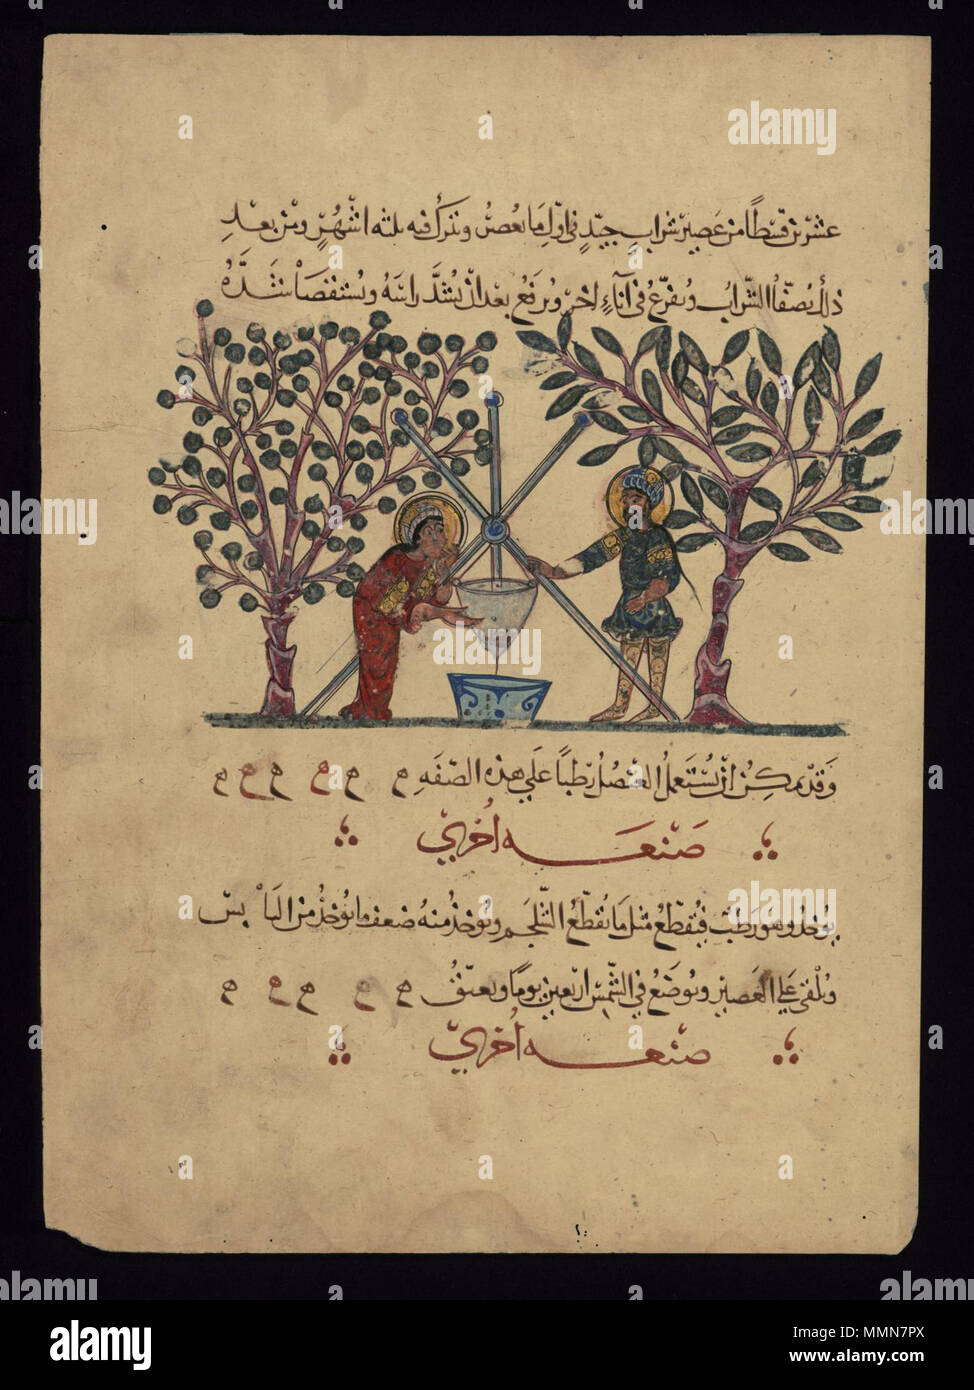 عشرين قسطا من عصير شراب جيد في اول ما يعصر ويترك فيه ثلثة اشهر ومن بعد
ذلك يصفا الشراب ويفرغ في اناء اخر ويرفع بعد ان يشد راسه ويستقصا شده
وقد يمكن ان يستعمل العنصل رطبا على هذه الصفه
صنعه اخرى
يوخذ وهو رطب فيقطع مثل ما يقطع الشلجم ويوخذ منه ضعف ما يوخذ من اليابس
ويلقى على العصير ويوضع في الشمس اربعين يوما ويعتق
صنعه اخرى
a alamy
alamy
Image ID: MMN7PX
www.alamy.com